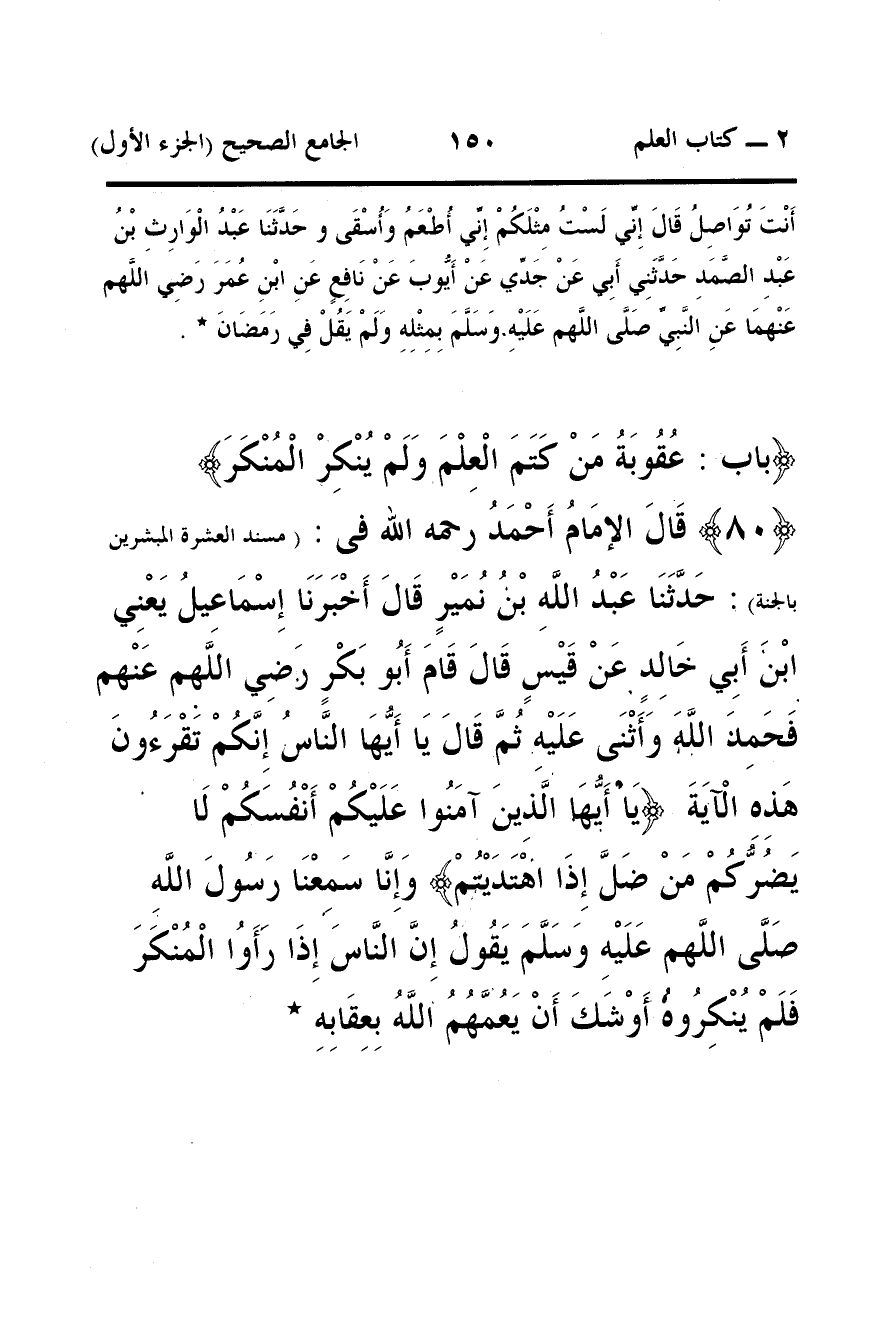 ٢ ــ كتاب العلم ١٥٠ الجامع الصحيح (الجزء الأول)
أَنْتَ تُوَاصِلُ قَالَ إِنِّي لَسْتُ مِثْلَكُمْ إِنِّي أُطْعَمُ وَأُسْقَى و حَدَّثَنَا عَبْدُ الْوَارِثِ بْنُ
عَبْدِ الصَّمَدِ حَدَّثَنِي أَبِي عَنْ جَدِّي عَنْ أَيُّوبَ عَنْ نَافِعٍ عَنِ ابْنِ عُمَرَ رَضِي اللَّهم
عَنْهمَا عَنِ النَّبِيِّ صَلَّى اللَّهم عَلَيْهِ وَسَلَّمَ بِمِثْلِهِ وَلَمْ يَقُلْ فِي رَمَضَانَ * .
﴿باب : عُقُوبَةُ مَنْ كَتَمَ الْعِلْمَ وَلَمْ يُنْكِرْ الْمُنْكَرَ﴾
﴿٨٠﴾ قَالَ الإمَامُ أَحْمَدُ رحمه الله فى : ( مسند العشرة المبشرين
بالجنة) : حَدَّثَنَا عَبْدُ اللَّهِ بْنُ نُمَيْرٍ قَالَ أَخْبَرَنَا إِسْمَاعِيلُ يَعْنِي
ابْنَ أَبِي خَالِدٍ عَنْ قَيْسٍ قَالَ قَامَ أَبُو بَكْرٍ رَضِي اللَّهم عَنْهم
فَحَمِدَ اللَّهَ وَأَثْنَى عَلَيْهِ ثُمَّ قَالَ يَا أَيُّهَا النَّاسُ إِنَّكُمْ تَقْرَءُونَ
هَذِهِ الْآيَةَ ﴿يَا أَيُّهَا الَّذِينَ آمَنُوا عَلَيْكُمْ أَنْفُسَكُمْ لَا
يَضُرُّكُمْ مَنْ ضَلَّ إِذَا اهْتَدَيْتُمْ﴾ وَإِنَّا سَمِعْنَا رَسُولَ اللَّهِ
صَلَّى اللَّهم عَلَيْهِ وَسَلَّمَ يَقُولُ إِنَّ النَّاسَ إِذَا رَأَوُا الْمُنْكَرَ
فَلَمْ يُنْكِرُوهُ أَوْشَكَ أَنْ يَعُمَّهُمُ اللَّهُ بِعِقَابِهِ *